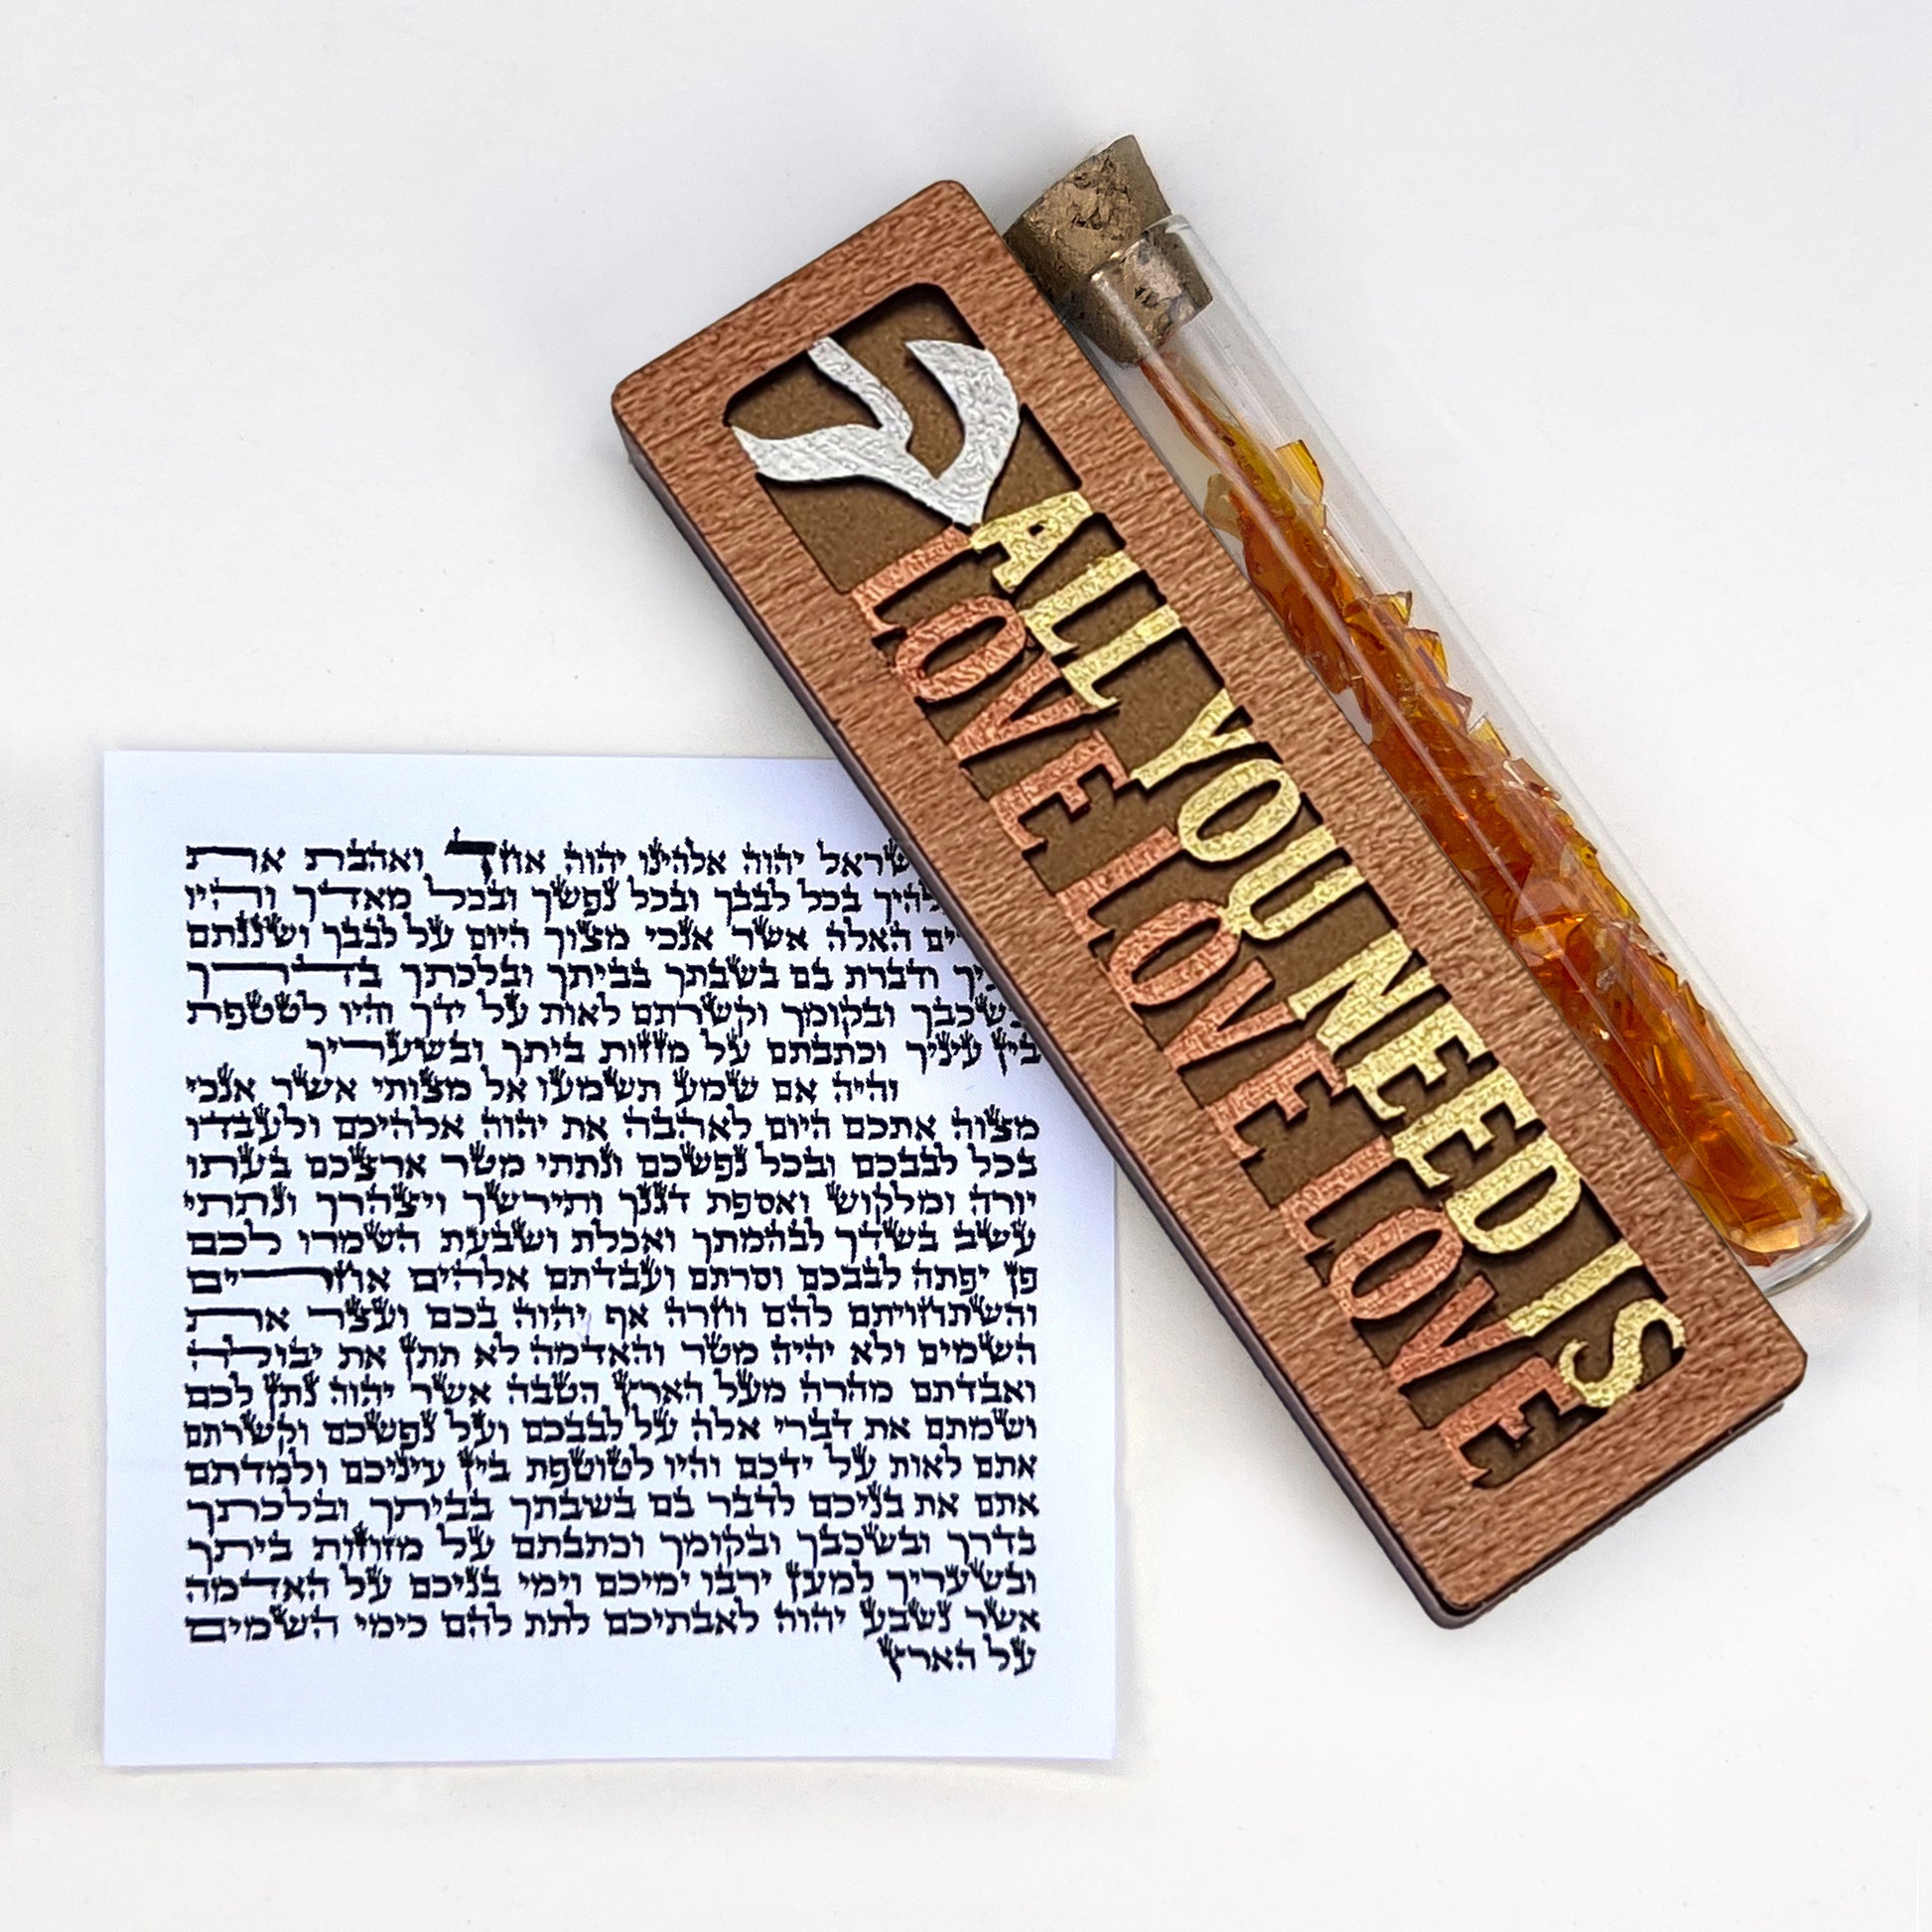 ש
ALL YOU NEED IS
LOVE LOVE LOVE LOVE
יהוה אלהינו יהוה אחד ואהבת את
בכל לבבך ובכל נפשך ובכל מאדך והיו
האלה אשר אנכי מצוך היום על לבבך ושננתם
ודברת בם בשבתך בביתך ובלכתך בדרך
ובקומך וקשרתם לאות על ידך והיו לטטפת
בין עיניך וכתבתם על מזזות ביתך ובשעריך
והיה אם שמע תשמעו אל מצותי אשר אנכי
מצוה אתכם היום לאהבה את יהוה אלהיכם ולעבדו
בכל לבבכם ובכל נפשכם ונתתי מטר ארצכם בעתו
יורה ומלקוש ואספת דגנך ותירשך ויצהרך ונתתי
עשב בשדך לבהמתך ואכלת ושבעת השמרו לכם
פן יפתה לבבכם וסרתם ועבדתם אלהים אחרים
והשתחויתם להם וחרה אף יהוה בכם ועצר את
השמים ולא יהיה מטר והאדמה לא תתן את יבולה
ואבדתם מהרה מעל הארץ הטבה אשר יהוה נתן לכם
ושמתם את דברי אלה על לבבכם ועל נפשכם וקשרתם
אתם לאות על ידכם והיו לטוטפת בין עיניכם ולמדתם
אתם את בניכם לדבר בם בשבתך בביתך ובלכתך
בדרך ובשכבך ובקומך וכתבתם על מזוזות ביתך
ובשעריך למען ירבו ימיכם וימי בניכם על האדמה
אשר נשבע יהוה לאבתיכם לתת להם כימי השמים
על הארץ